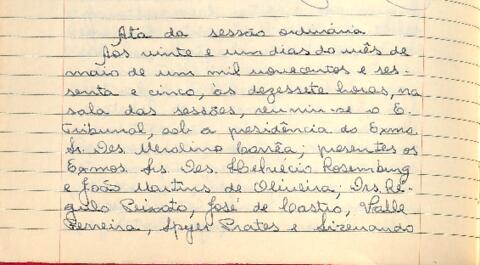 Ata da sessão ordinária
Aos vinte e um dias do mês de
maio de um mil novecentos e ses-
senta e cinco, às dezessete horas, na
sala das sessões, reuniu-se o E.
Tribunal, sob a presidência do Exmo
Sr. Des. Merolino Corrêa; presentes os
Exmos Srs. Des. Helvécio Rosemburg
e João Martins de Oliveira; Drs. Ré-
gulo Peixoto, José de Castro, Valle
Ferreira, Spyer Prates e Sizenando